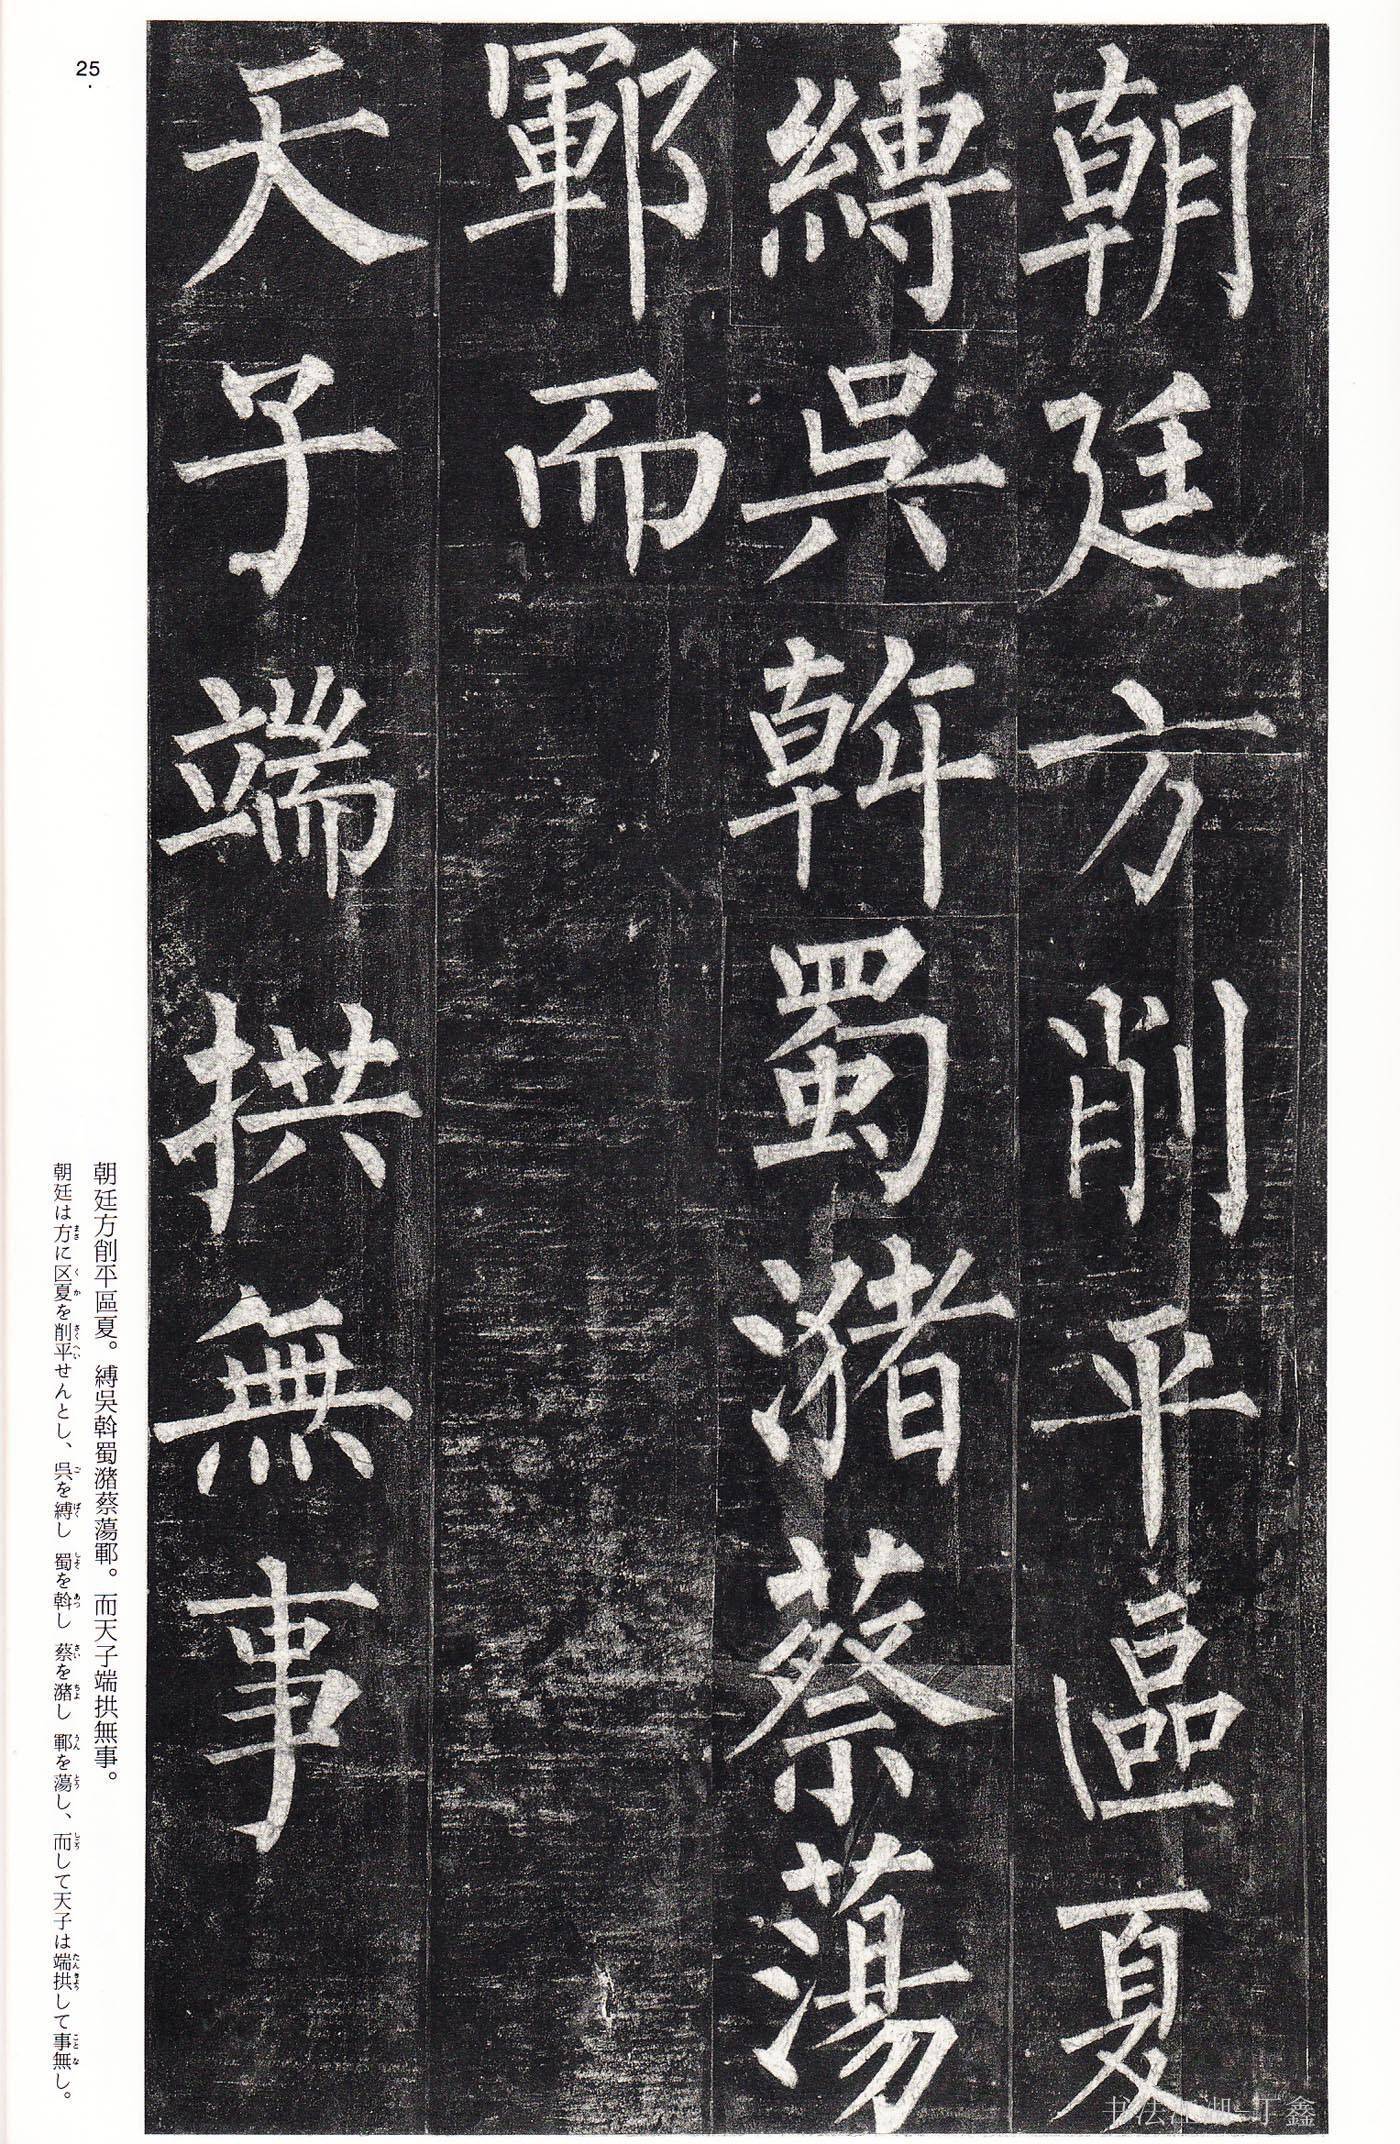 朝廷方削平區夏
縛吳斡蜀瀦蔡蕩
鄆而
天子端拱無事
25
朝廷方削平區夏。縛吳斡蜀瀦蔡蕩鄆。而天子端拱無事。
朝廷は方に区夏を削平せんとし、呉を縛し 蜀を斡し 蔡を瀦し 鄆を蕩し、而して天子は端拱して事無し。
书法江湖-丁鑫